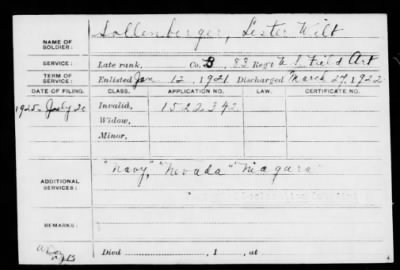 Sollenberger, Lester Wilt
NAME OF SOLDIER:
SERVICE: Late rank, Co. B, 83 Regt U.S. Field Art
TERM OF SERVICE: Enlisted Jan 12, 1921 Discharged March 27, 1922
DATE OF FILING. CLASS. APPLICATION NO. LAW. CERTIFICATE NO.
1925 July 20 Invalid, 1522342
Widow,
Minor,
ADDITIONAL SERVICES: "Navy," "Nevada" "Niagara"
REMARKS:
Died , 1 , at